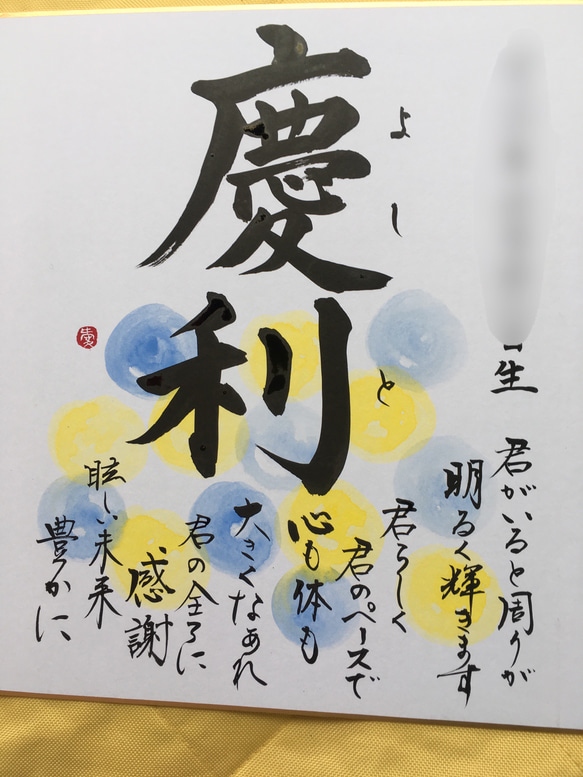 慶利
よしと
生
君がいると周りが
明るく輝きます
君らしく
君のペースで
心も体も
大きくなあれ
君の全てに
感謝
眩しい未来
豊かに、